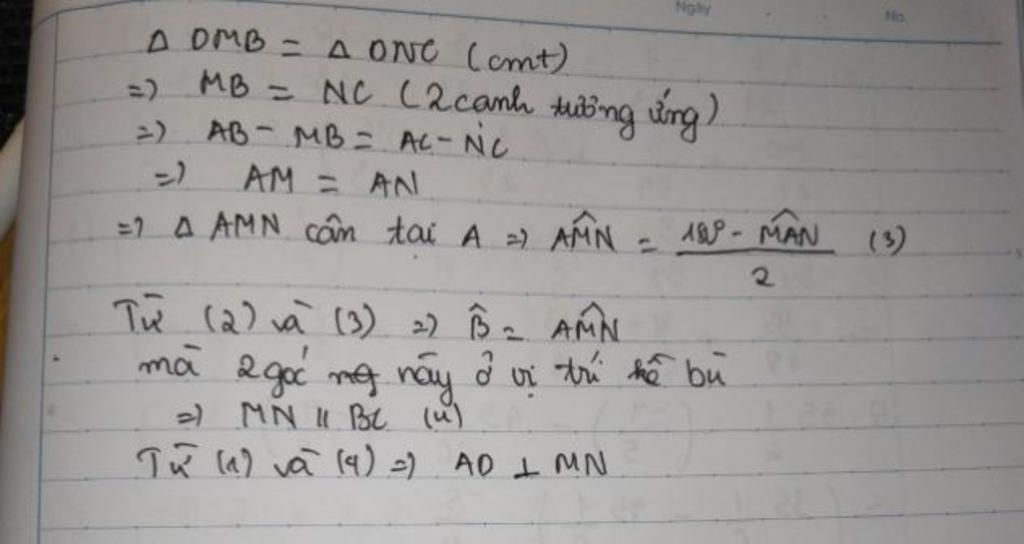 Ngày No.
Δ OMB = Δ ONC (cmt)
=> MB = NC (2 canh tương ứng)
=> AB - MB = AC - NC
=> AM = AN
=> Δ AMN cân tai A => AMN̂ = (180° - MAN̂) / 2 (3)
Từ (2) và (3) => B̂ = AMN̂
mà 2 góc này ở vị trí kề bù
=> MN // BC (4)
Từ (1) và (4) => AO ⊥ MN